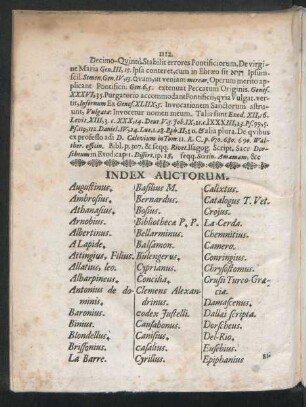 1112.
Decimo-Quinto. Stabilit errores Pontificiorum. De virgi-
ne Maria Gen. III, 15. Ipsa conteret, cum in Ebræo sit הוא Ipsum
scil. Semen, Gen. IV, 13. Quam, ut veniam merear, Operum merito ap-
plicant Pontificii. Gen. 6, 5. extenuat Peccatum Originis. Genes.
XXXVI, Purgatorio accommodant Pontificii, qvia Vulgat. ver-
tit, Infernum Ex Invocationem Sanctorum astru-
unt, Vulgata: Invocetur nomen meum. Talia sunt Exod. XII, 16.
Levit. XIII, 3. Deut. V, 9. Job
& alia plura. De qvibus
ex professo adi D. Calovium in Tom. II. E. C. p. 670. 680. 690. Wal-
ther. officin. Bibl. p. 307. & seqq. Rivet. Isagog. Script. Sacr. Dor-
schæum in Exod. cap. 1. Dissert. 19. 18 & seqq. Sixtin. Amamam. &c
INDEX AUCTORUM.
Augustinus.
Ambrosius.
Athanasius.
Arnobius.
Albertinus.
A Lapide.
Attingius, Filius.
Allatius, leo.
Albaspineus.
Antonius de do-
minis.
Baronius.
Binius.
Blondellus.
Brissonius.
La Barre.
Basilius M.
Bernardus.
Bosius.
Bibliotheca P. P.
Bellarminus.
Balsamon.
Bulengerus.
Cyprianus.
Concilia.
Clemens Alexan-
drinus.
codex Justelli.
Causabonus.
Canisius.
casalius.
Cyrillus.
Calixtus.
Catalogus T. Vet.
Crojus.
La-Cerda.
Chemnitius.
Camero.
Conringius.
Chrysostomus.
Crusii Turco-Græ-
cia.
Damascenus.
Dallæi scripta.
Dorscheus.
Del-Rio.
Eusebius.
Epiphanius